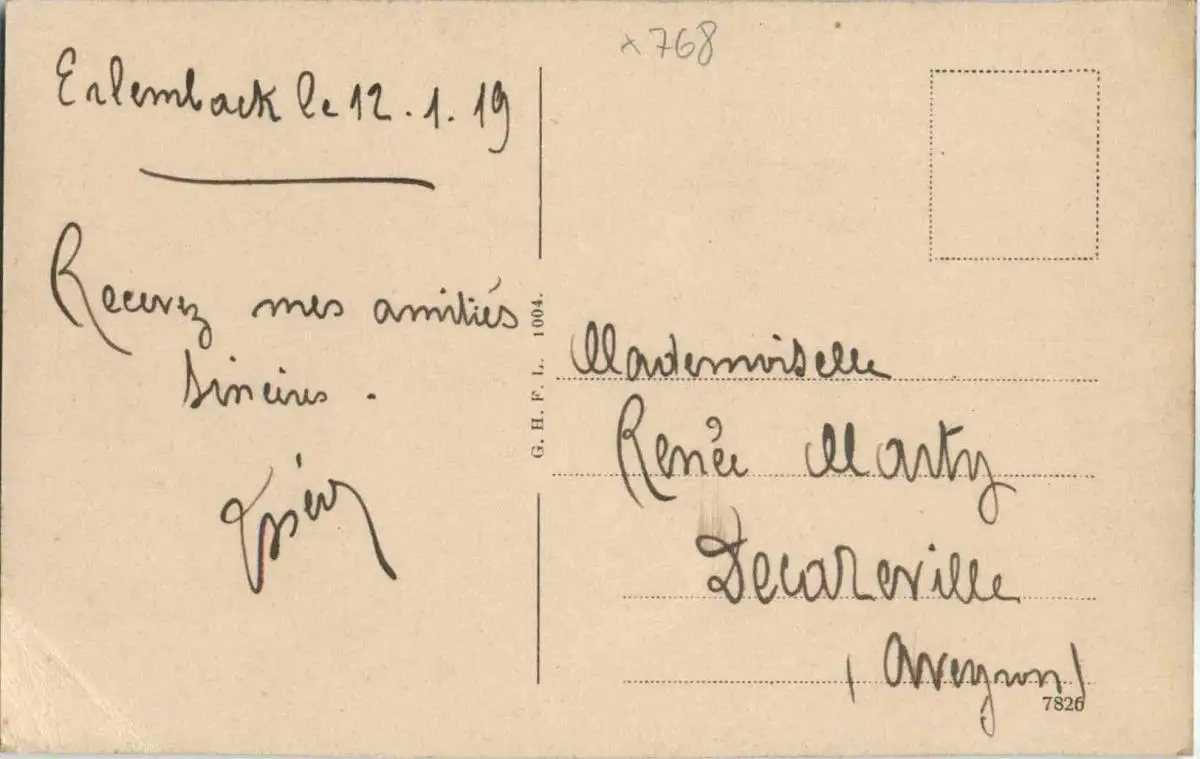 x 768
Erlemback le 12.1.19
Recevez mes amitiés
sincères.
G. H. F. L. 1004.
Mademoiselle
Renée Marty
Decazeville
(Aveyron)
7826